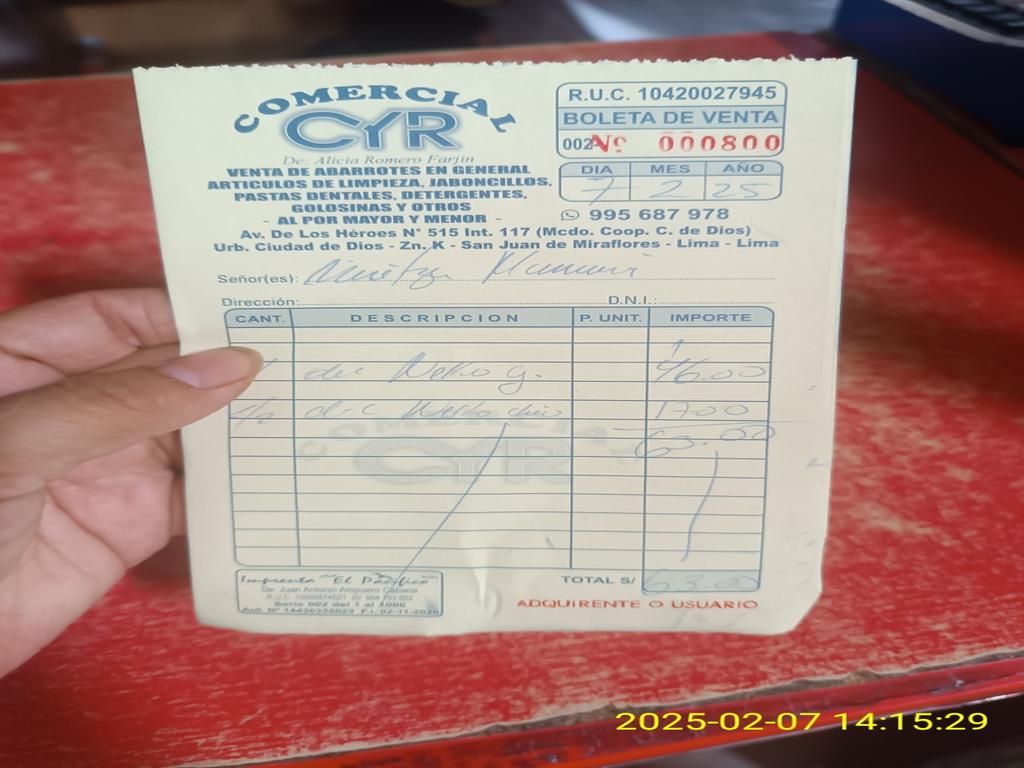 COMERCIAL
CYR
De: Alicia Romero Farjin
VENTA DE ABARROTES EN GENERAL
ARTICULOS DE LIMPIEZA, JABONCILLOS,
PASTAS DENTALES, DETERGENTES,
GOLOSINAS Y OTROS
- AL POR MAYOR Y MENOR -
R.U.C. 10420027945
BOLETA DE VENTA
002- Nº 000800
DIA MES AÑO
7 2 25
995 687 978
Av. De Los Héroes N° 515 Int. 117 (Mcdo. Coop. C. de Dios)
Urb. Ciudad de Dios - Zn. K - San Juan de Miraflores - Lima - Lima
Señor(es):
Dirección: D.N.I.:
CANT. DESCRIPCION P. UNIT. IMPORTE
g. 46.00
1/2 1700
63.00
COMERCIAL
CYR
TOTAL S/ 63.00
Imprenta "El Pacífico"
De: Juan Antonio Ampuero
Serie 002 del 1 al 1000
F.I. 02-11-2020
ADQUIRENTE O USUARIO
2025-02-07 14:15:29